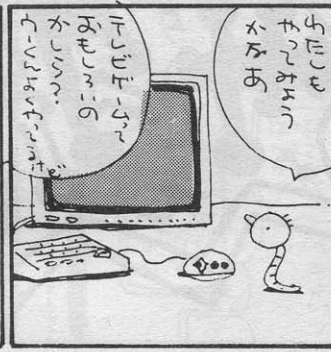 わたしも
やってみよう
かなあ
テレビゲームって
おもしろいの
かしら?
うーくんよくやってるけど